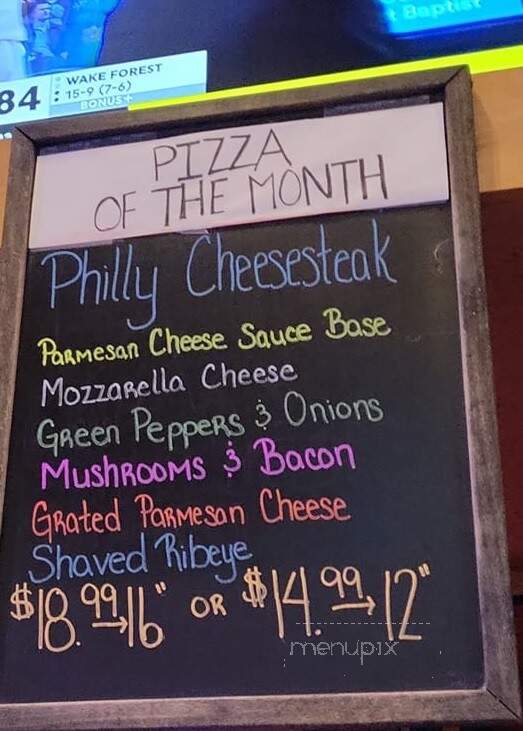 t Baptist
84
WAKE FOREST
15-9 (7-6)
BONUS+
PIZZA
OF THE MONTH
Philly Cheesesteak
Parmesan Cheese Sauce Base
Mozzarella Cheese
Green Peppers & Onions
Mushrooms & Bacon
Grated Parmesan Cheese
Shaved Ribeye
$18.99→16" OR $14.99→12"
menupix